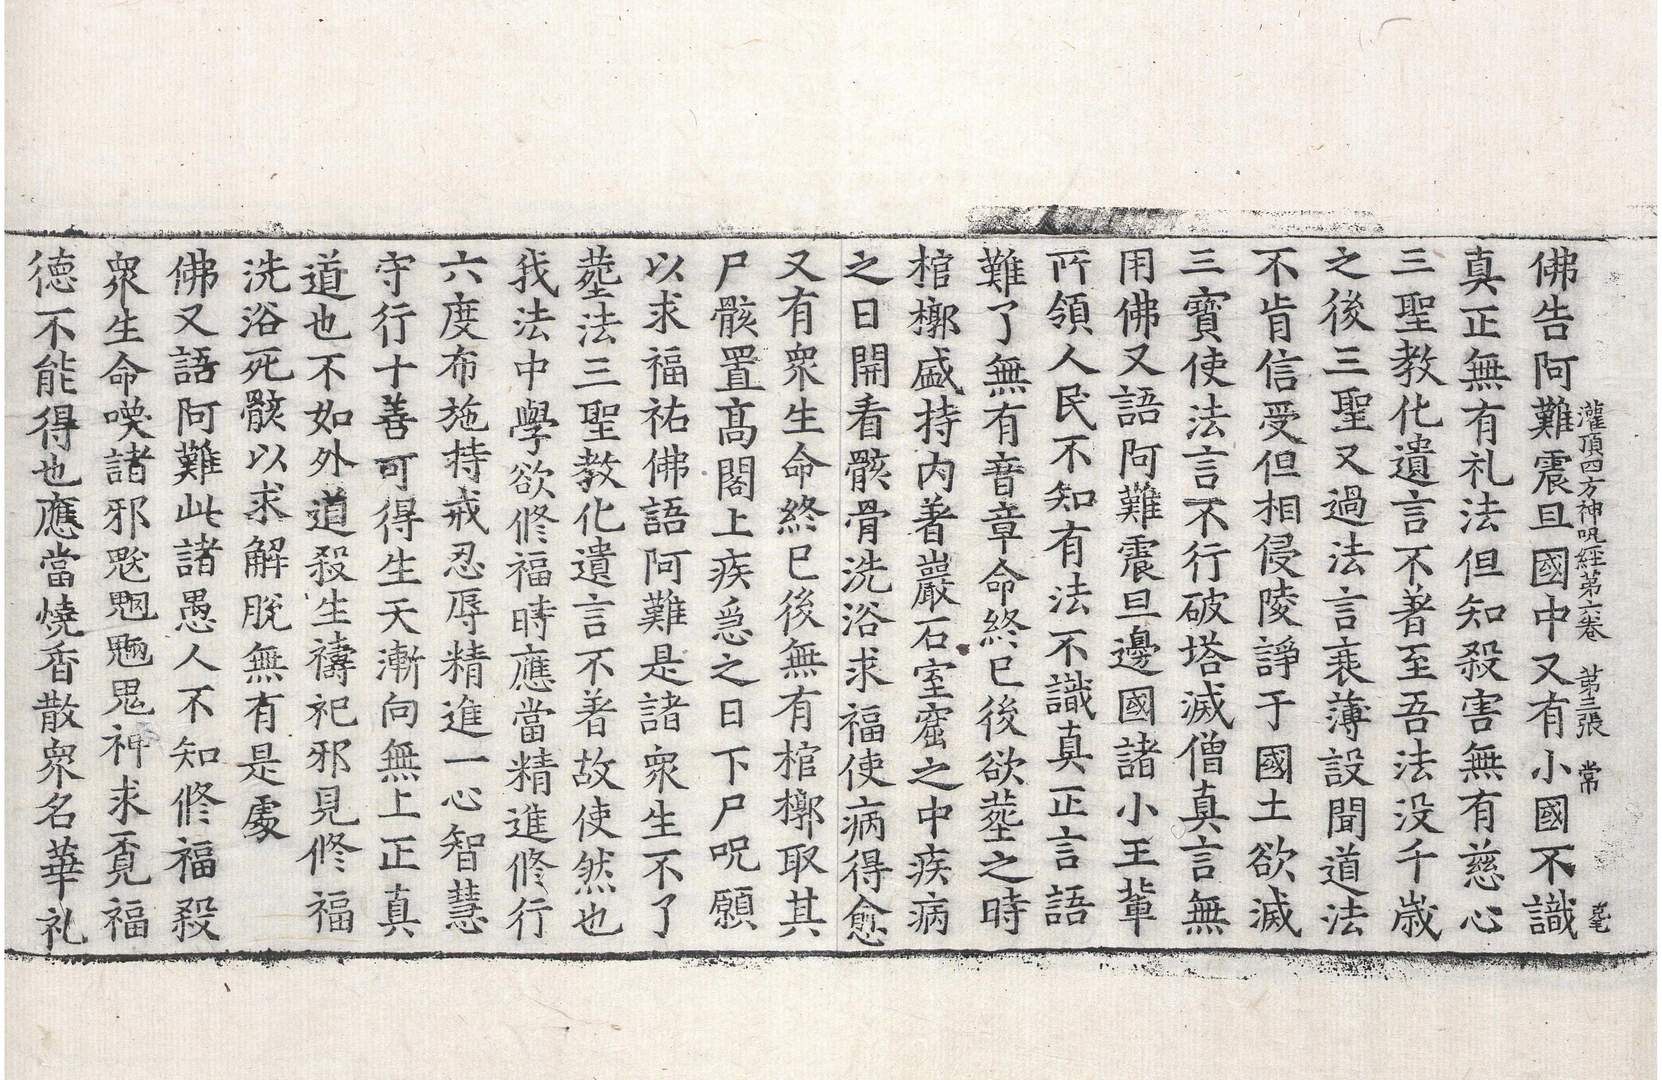 灌頂四方神呪經第六卷 第三張 常
佛告阿難震旦國中又有小國不識
真正無有礼法但知殺害無有慈心
三聖教化遺言不著至吾法没千歳
之後三聖又過法言衰薄設聞道法
不肯信受但相侵陵諍于國土欲滅
三寶使法言不行破塔滅僧真言無
用佛又語阿難震旦邊國諸小王輩
所領人民不知有法不識真正言語
難了無有音章命終已後欲葬之時
棺槨盛持内著巖石室窟之中疾病
之日開看骸骨洗浴求福使病得愈
又有衆生命終已後無有棺槨取其
尸骸置髙閣上疾急之日下尸呪願
以求福祐佛語阿難是諸衆生不了
葬法三聖教化遺言不著故使然也
我法中學欲修福時應當精進修行
六度布施持戒忍辱精進一心智慧
守行十善可得生天漸向無上正真
道也不如外道殺生禱祀邪見修福
洗浴死骸以求解脱無有是處
佛又語阿難此諸愚人不知修福殺
衆生命喚諸邪魃魍魎鬼神求覔福
德不能得也應當燒香散衆名華礼